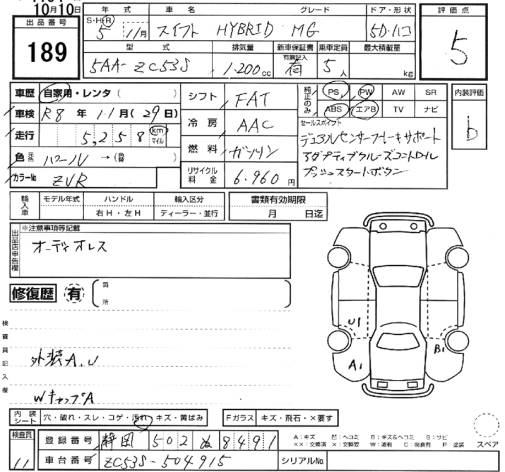 10月10日
出品番号
189
年式 車名 グレード ドア・形状 評価点
S・H・R 5 11月 スイフト HYBRID MG 5D・ハコ 5
型式 排気量 新車保証書 乗車定員 最大積載量
有無記入
5AA-ZC53S 1,200cc 有 5人 kg
車歴 自家用・レンタ( ) シフト FAT 純正のみ PS PW AW SR 内装評価
ABS エアB TV ナビ b
車検 R8年11月(29日) 冷房 AAC
セールスポイント
デュアルセンサーブレーキサポート
アダプティブクルーズコントロール
プッシュスタートボタン
走行 5,258 km マイル
燃料 ガソリン
色 パール →( )
カラーNo ZVR
リサイクル料金 6,960円
輸入車 モデル年式 ハンドル 輸入区分 書類有効期限
右H・左H ディーラー・並行 月 日迄
出品店申告欄
※注意事項等記載
オーディオレス
修復歴 有 箇所
検査員記入欄
外装A.U
WキャップA
U1
A1
B1
内装シート 穴・破れ・スレ・コゲ・汚れ・キズ・黄ばみ Fガラス キズ・飛石・×要す
検査員 11
登録番号 静岡 502 ぬ 8491
車台番号 ZC53S-504915 シリアルNo.
A:キズ U:ヘコミ B:キズ&ヘコミ S:サビ
スペア